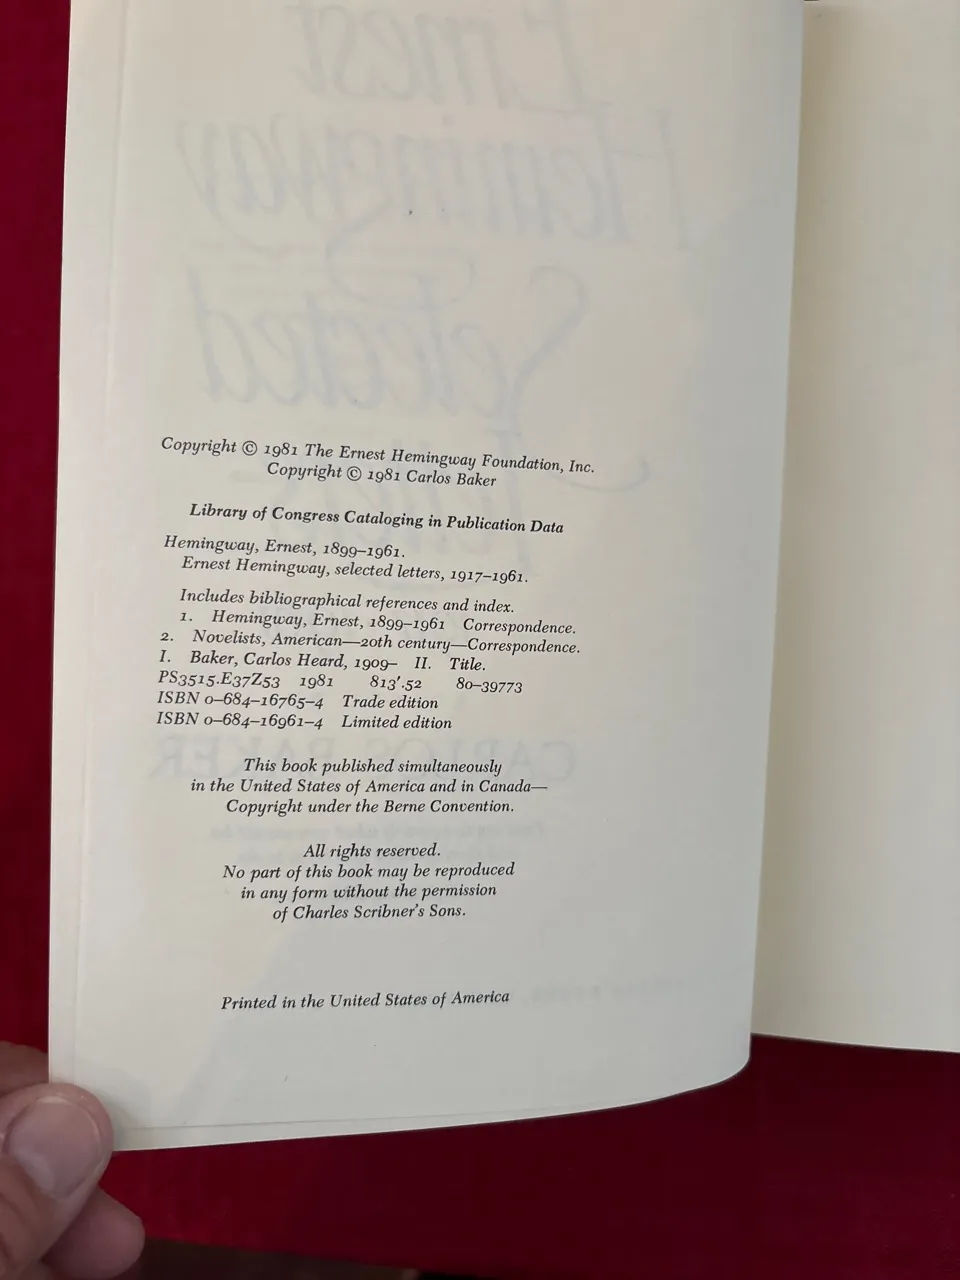 Ernest
Hemingway
Selected
Copyright © 1981 The Ernest Hemingway Foundation, Inc.
Copyright © 1981 Carlos Baker
Library of Congress Cataloging in Publication Data
Hemingway, Ernest, 1899–1961.
Ernest Hemingway, selected letters, 1917–1961.
Includes bibliographical references and index.
1. Hemingway, Ernest, 1899–1961 Correspondence.
2. Novelists, American—20th century—Correspondence.
I. Baker, Carlos Heard, 1909– II. Title.
PS3515.E37Z53 1981 813'.52 80–39773
ISBN 0–684–16765–4 Trade edition
ISBN 0–684–16961–4 Limited edition
CARLOS BAKER
This book published simultaneously
in the United States of America and in Canada—
Copyright under the Berne Convention.
All rights reserved.
No part of this book may be reproduced
in any form without the permission
of Charles Scribner's Sons.
Printed in the United States of America